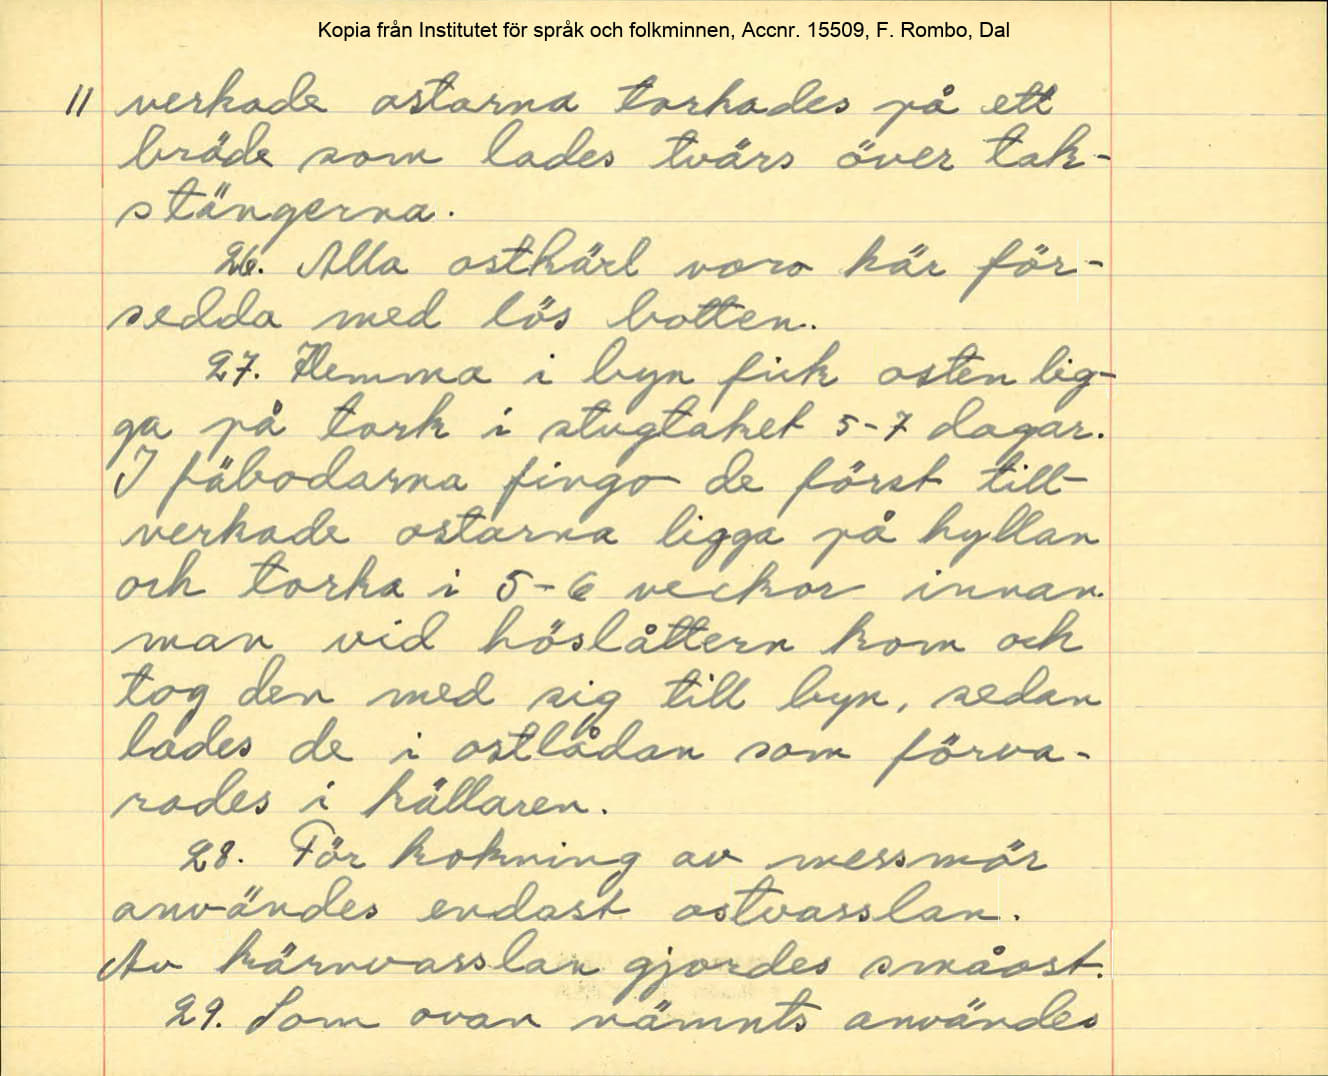 Kopia från Institutet för språk och folkminnen, Accnr. 15509, F. Rombo, Dal
11 verkade ostarna torkades på ett
bräde som lades tvärs över tak-
stängerna.
26. Alla ostkärl voro här för-
sedda med lös botten.
27. Hemma i byn fick osten lig-
ga på tork i stugtaket 5-7 dagar.
I fäbodarna fingo de först till-
verkade ostarna ligga på hyllan
och torka i 5-6 veckor innan
man vid höslåttern kom och
tog den med sig till byn, sedan
lades de i ostlådan som förva-
rades i källaren.
28. För kokning av messmör
användes endast ostvasslan.
Av kärnvasslan gjordes småost.
29. Som ovan nämnts användes